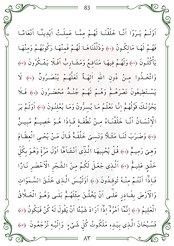 83
أَوَلَمْ يَرَوْا أَنَّا خَلَقْنَا لَهُمْ مِمَّا عَمِلَتْ أَيْدِينَا أَنْعَامًا
فَهُمْ لَهَا مَالِكُونَ وَذَلَّلْنَاهَا لَهُمْ فَمِنْهَا رَكُوبُهُمْ وَمِنْهَا
يَأْكُلُونَ وَلَهُمْ فِيهَا مَنَافِعُ وَمَشَارِبُ أَفَلَا يَشْكُرُونَ
وَاتَّخَذُوا مِنْ دُونِ اللَّهِ آلِهَةً لَعَلَّهُمْ يُنْصَرُونَ لَا
يَسْتَطِيعُونَ نَصْرَهُمْ وَهُمْ لَهُمْ جُنْدٌ مُحْضَرُونَ فَلَا
يَحْزُنْكَ قَوْلُهُمْ إِنَّا نَعْلَمُ مَا يُسِرُّونَ وَمَا يُعْلِنُونَ أَوَلَمْ يَرَ
الْإِنْسَانُ أَنَّا خَلَقْنَاهُ مِنْ نُطْفَةٍ فَإِذَا هُوَ خَصِيمٌ مُبِينٌ
وَضَرَبَ لَنَا مَثَلًا وَنَسِيَ خَلْقَهُ قَالَ مَنْ يُحْيِي الْعِظَامَ
وَهِيَ رَمِيمٌ قُلْ يُحْيِيهَا الَّذِي أَنْشَأَهَا أَوَّلَ مَرَّةٍ وَهُوَ بِكُلِّ
خَلْقٍ عَلِيمٌ الَّذِي جَعَلَ لَكُمْ مِنَ الشَّجَرِ الْأَخْضَرِ نَارًا
فَإِذَا أَنْتُمْ مِنْهُ تُوقِدُونَ أَوَلَيْسَ الَّذِي خَلَقَ السَّمَوَاتِ
وَالْأَرْضَ بِقَادِرٍ عَلَى أَنْ يَخْلُقَ مِثْلَهُمْ بَلَى وَهُوَ الْخَلَّاقُ
الْعَلِيمُ إِنَّمَا أَمْرُهُ إِذَا أَرَادَ شَيْئًا أَنْ يَقُولَ لَهُ كُنْ فَيَكُونُ
فَسُبْحَانَ الَّذِي بِيَدِهِ مَلَكُوتُ كُلِّ شَيْءٍ وَإِلَيْهِ تُرْجَعُونَ
٨٣